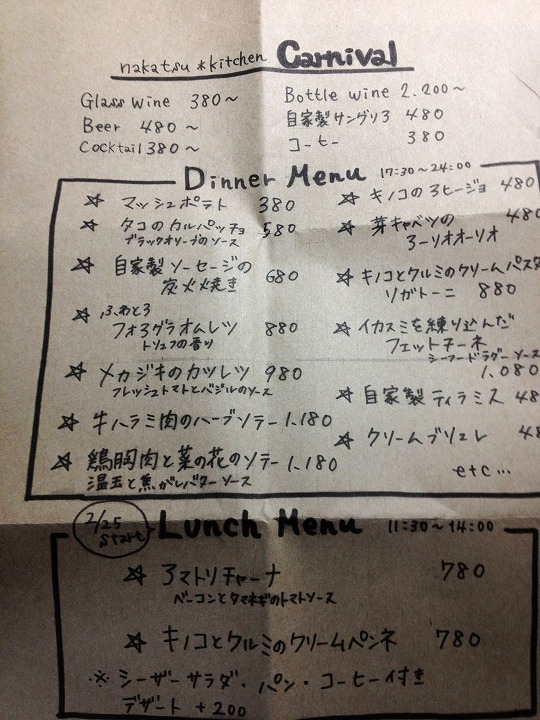 nakatsu *kitchen Carnival
Glass wine 380〜
Bottle wine 2.200〜
Beer 480〜
自家製サングリア 480
Cocktail 380〜
コーヒー 380
Dinner Menu 17:30〜24:00
☆ マッシュポテト 380
☆ タコのカルパッチョ 580
ブラックオリーブのソース
☆ 自家製ソーセージの
炭火焼き 680
☆ ふわとろ
フォアグラオムレツ 880
トリュフの香り
☆ メカジキのカツレツ 980
フレッシュトマトとバジルのソース
☆ 牛ハラミ肉のハーブソテー 1.180
☆ 鶏胸肉と菜の花のソテー 1.180
温玉と焦がしバターソース
☆ キノコのアヒージョ 480
☆ 芽キャベツの 480
アーリオオーリオ
☆ キノコとクルミのクリームパスタ
リガトーニ 880
☆ イカスミを練り込んだ
フェットチーネ
シーフードラグーソース
1.080
☆ 自家製ティラミス 48
☆ クリームブリュレ 48
etc...
2/25
start
Lunch Menu 11:30〜14:00
☆ アマトリチャーナ 780
ベーコンとタマネギのトマトソース
☆ キノコとクルミのクリームペンネ 780
※ シーザーサラダ・パン・コーヒー付き
デザート +200